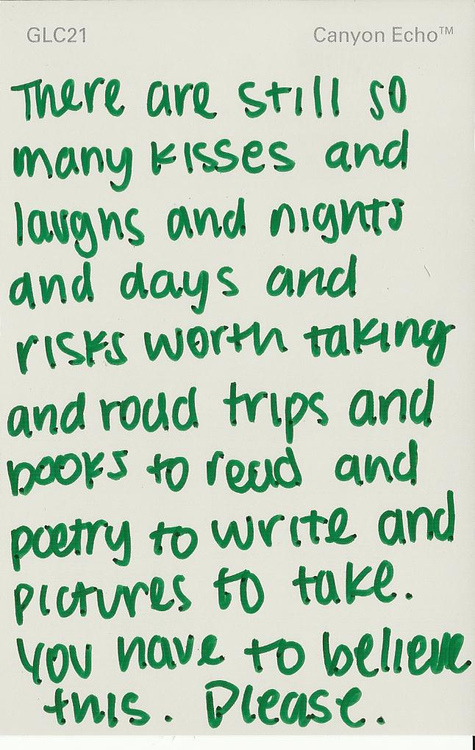 GLC21 Canyon Echo™
There are still so
many kisses and
laughs and nights
and days and
risks worth taking
and road trips and
books to read and
poetry to write and
pictures to take.
You have to believe
this. Please.